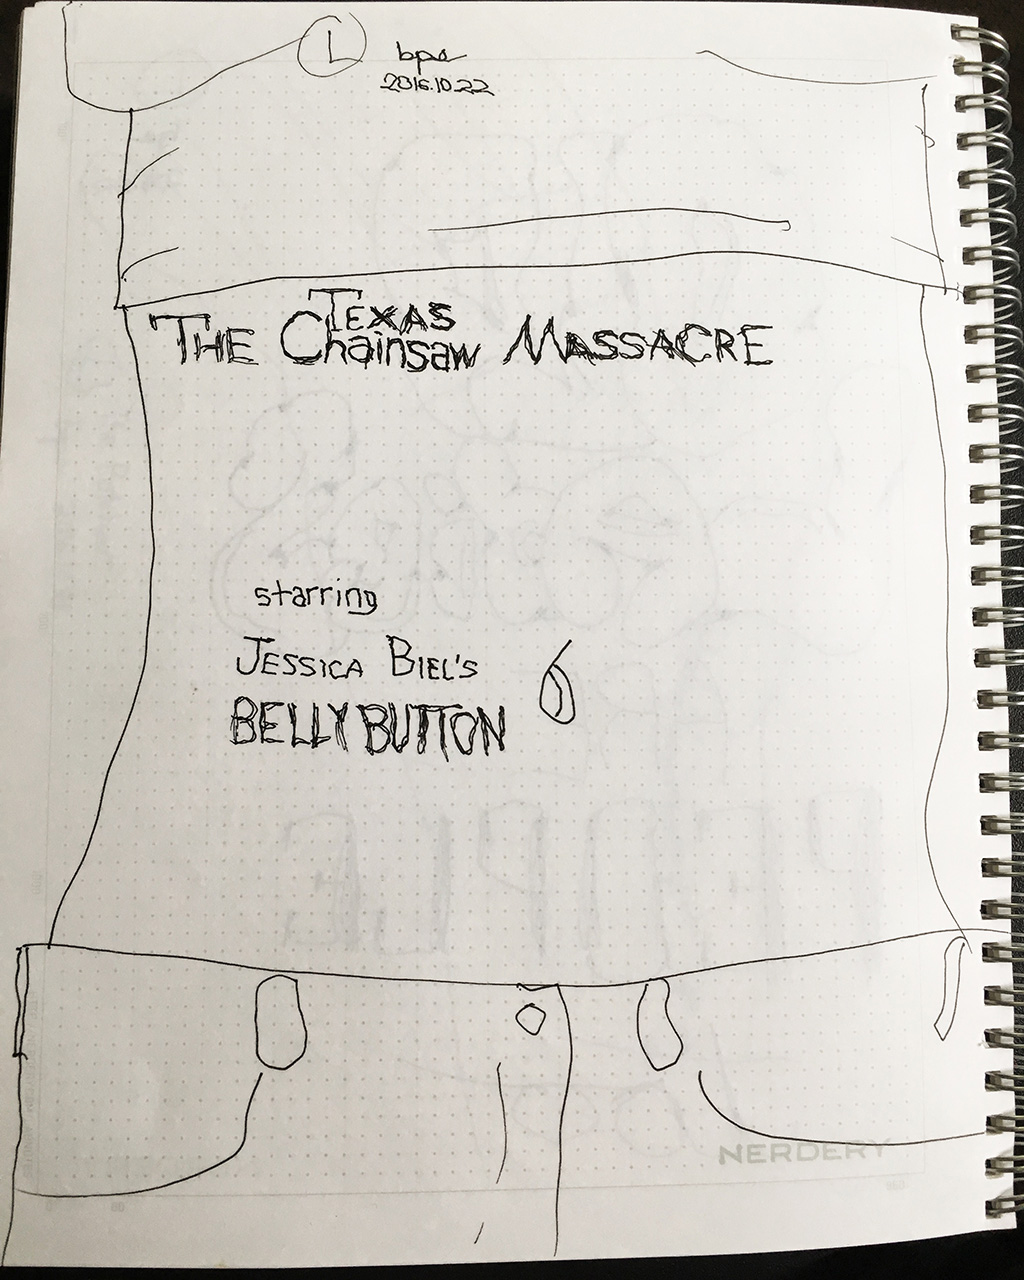 L
bpa
2016.10.22
THE TEXAS Chainsaw MASSACRE
starring
JESSICA BIEL'S
BELLYBUTTON
NERDERY